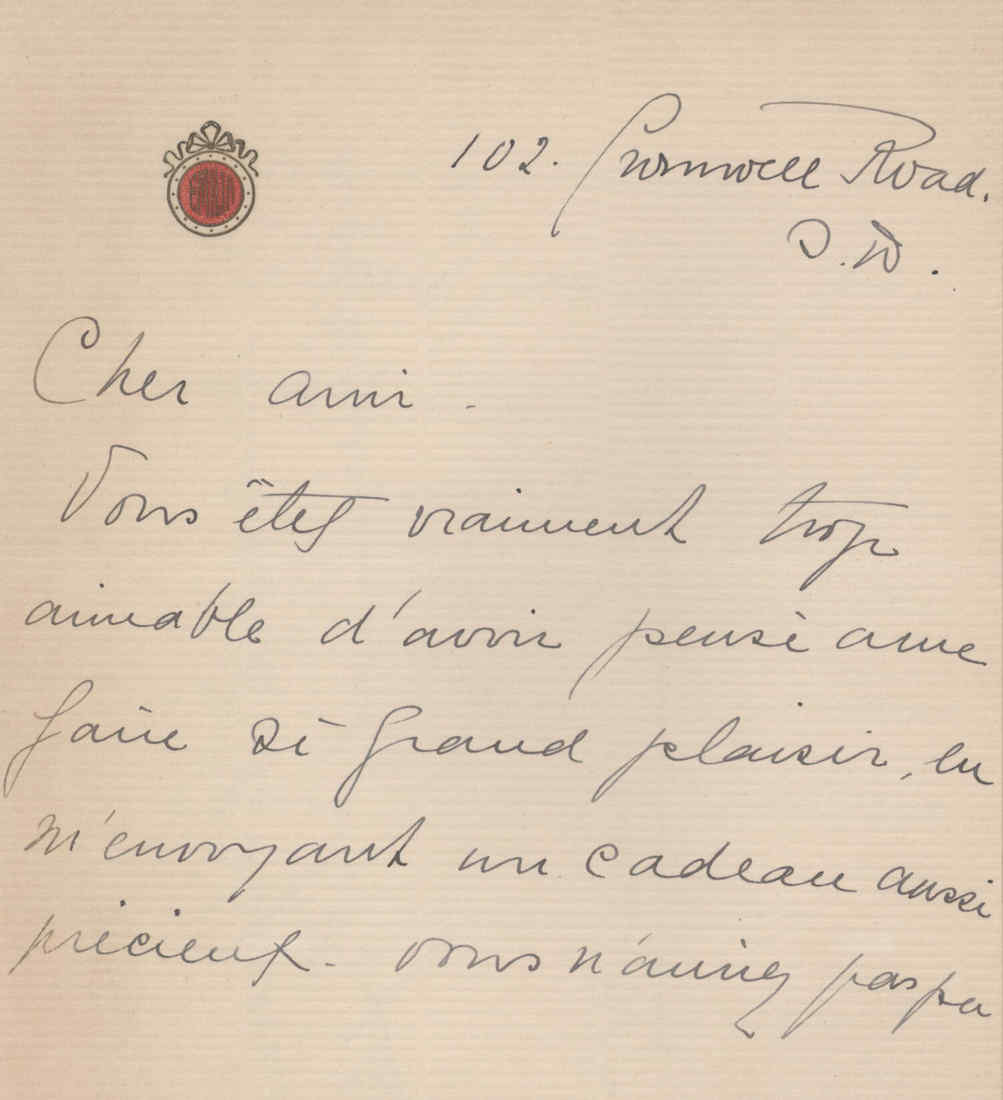 102. Cromwell Road.
S.W.
Cher ami -
Vous êtes vraiment trop
aimable d'avoir pensé a me
faire si grand plaisir, en
m'envoyant un cadeau aussi
précieux - vous n'auriez pas pu